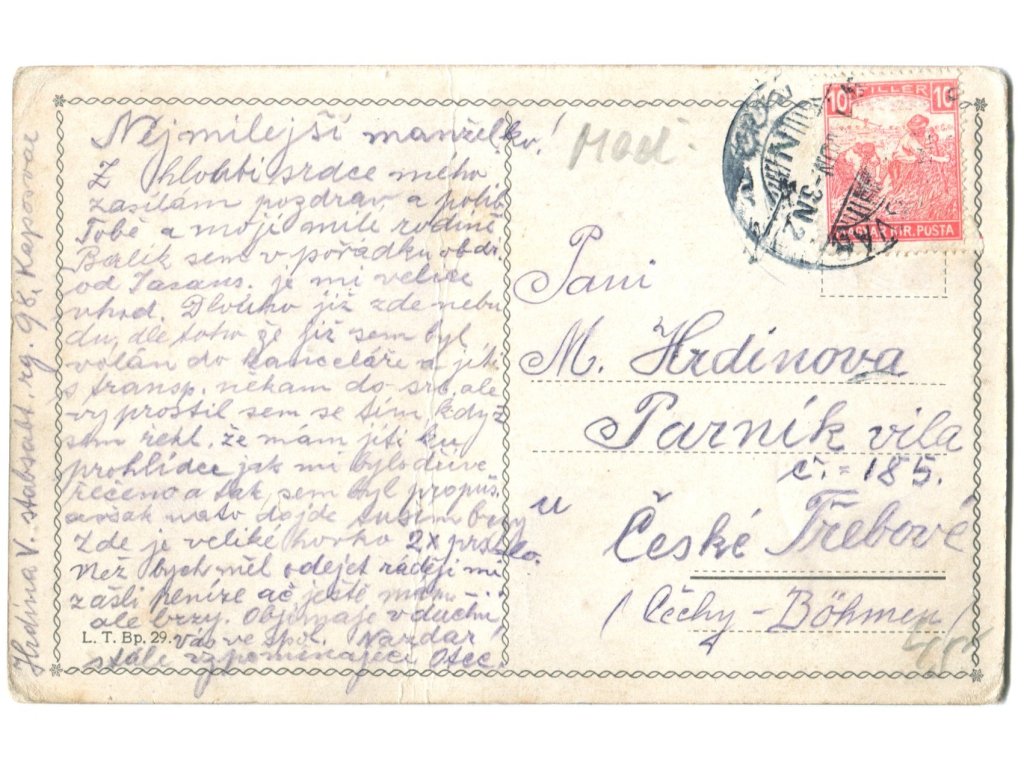 Nejmilejší manželko!
Z hloubi srdce mého
zasílám pozdrav a políb.
Tobě a moji milé rodině
Balík sem v pořádku obdr.
od Jasans. je mi velice
vhod. Dlouho již zde nebu
du, dle toho že již sem byl
volán do kanceláře a jíti
s transp. někam do srb. ale
vyprostil sem se tím, když
sem řekl. že mám jíti ku
prohlídce jak mi bylo dříve
řečeno a tak sem byl propuš.
avšak na to dojde tusim brzy
Zde je veliké horko 2x prše
lo.
Než bych měl odejet raději mi
zašli peníze ač ještě mám
ale brzy. Objímaje v duchu
Vás ve spol. Nazdar
stále vzpomínající Otec.
L. T. Bp. 29.
Hrdina V. stabsabt. rg. 98, Kaposvar
Maď.
10 FILLER 10
MAGYAR KIR. POSTA
Paní
M. Hrdinova
Parník vila
č. 185.
u
České Třebové
(Čechy - Böhmen)